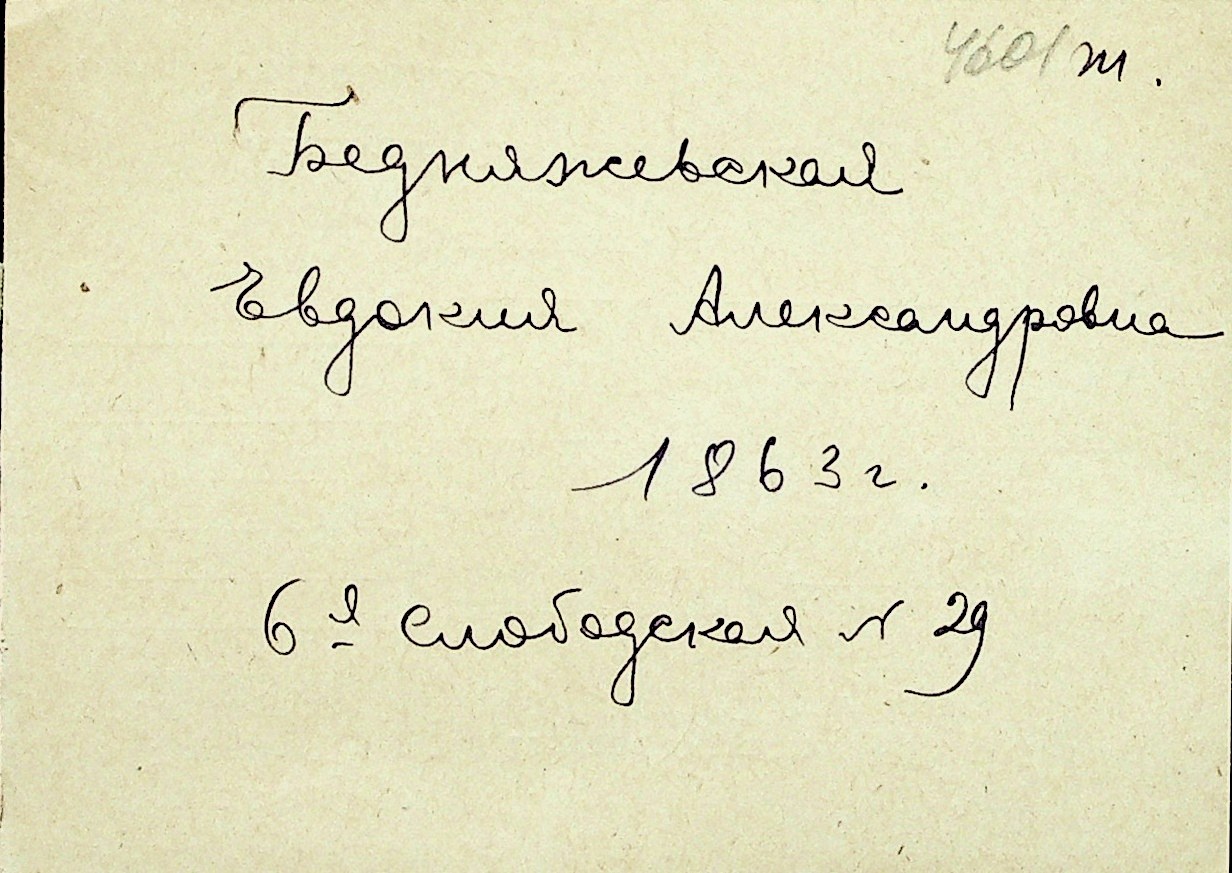 4601 т.
Бедняжевская
Евдокия Александровна
1863 г.
6я Слободская N 29